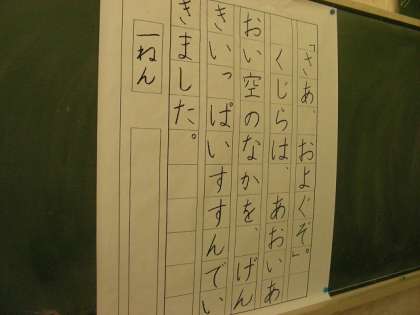 「さあ、およぐぞ。」
くじらは、あおいあ
おい空のなかを、げん
きいっぱいすすんでい
きました。
一ねん